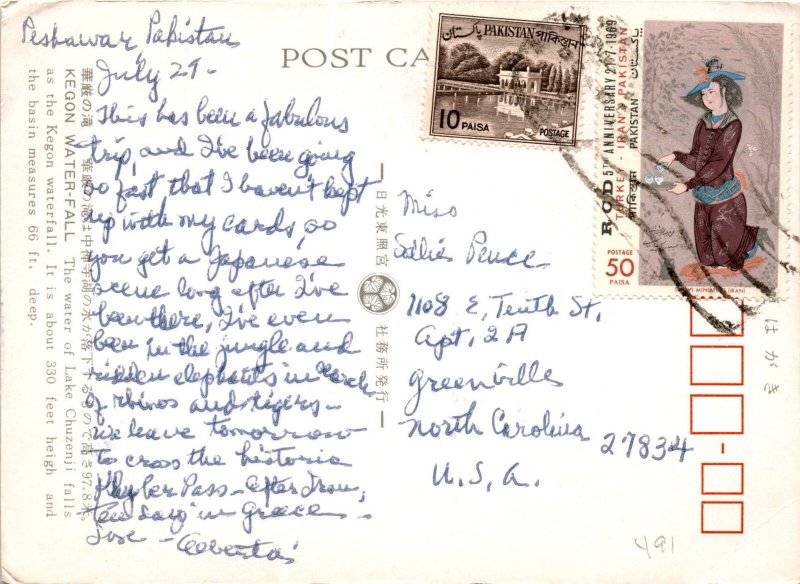 Peshawar Pakistan
July 29-
This has been a fabulous
trip, and I've been going
so fast that I haven't kept
up with my cards, so
you get a Japanese
scene long after I've
been there, I've even
been in the jungle and
ridden elephants in search
of rhinos and tigers -
We leave tomorrow
to cross the historic
Khyber Pass - After Iran,
few days in Greece -
Love -
POST CA
Miss
Sallie Pence
1108 E. Tenth St,
Apt, 2A
Greenville
North Carolina
27834
U.S.A.
491
PAKISTAN
10 PAISA
POSTAGE
RCD 5TH ANNIVERSARY 21-7-1969
TURKEY - IRAN - PAKISTAN
PAKISTAN
POSTAGE
50
PAISA
(IRAN)
日光東照宮
社務所発行
はがき
華厳の滝 華厳の滝は中禅寺湖の水が落下するもので高さ97.8米。
KEGON WATER-FALL The water of Lake Chuzenji falls
as the Kegon waterfall. It is about 330 feet heigh and
the basin measures 66 ft. deep.